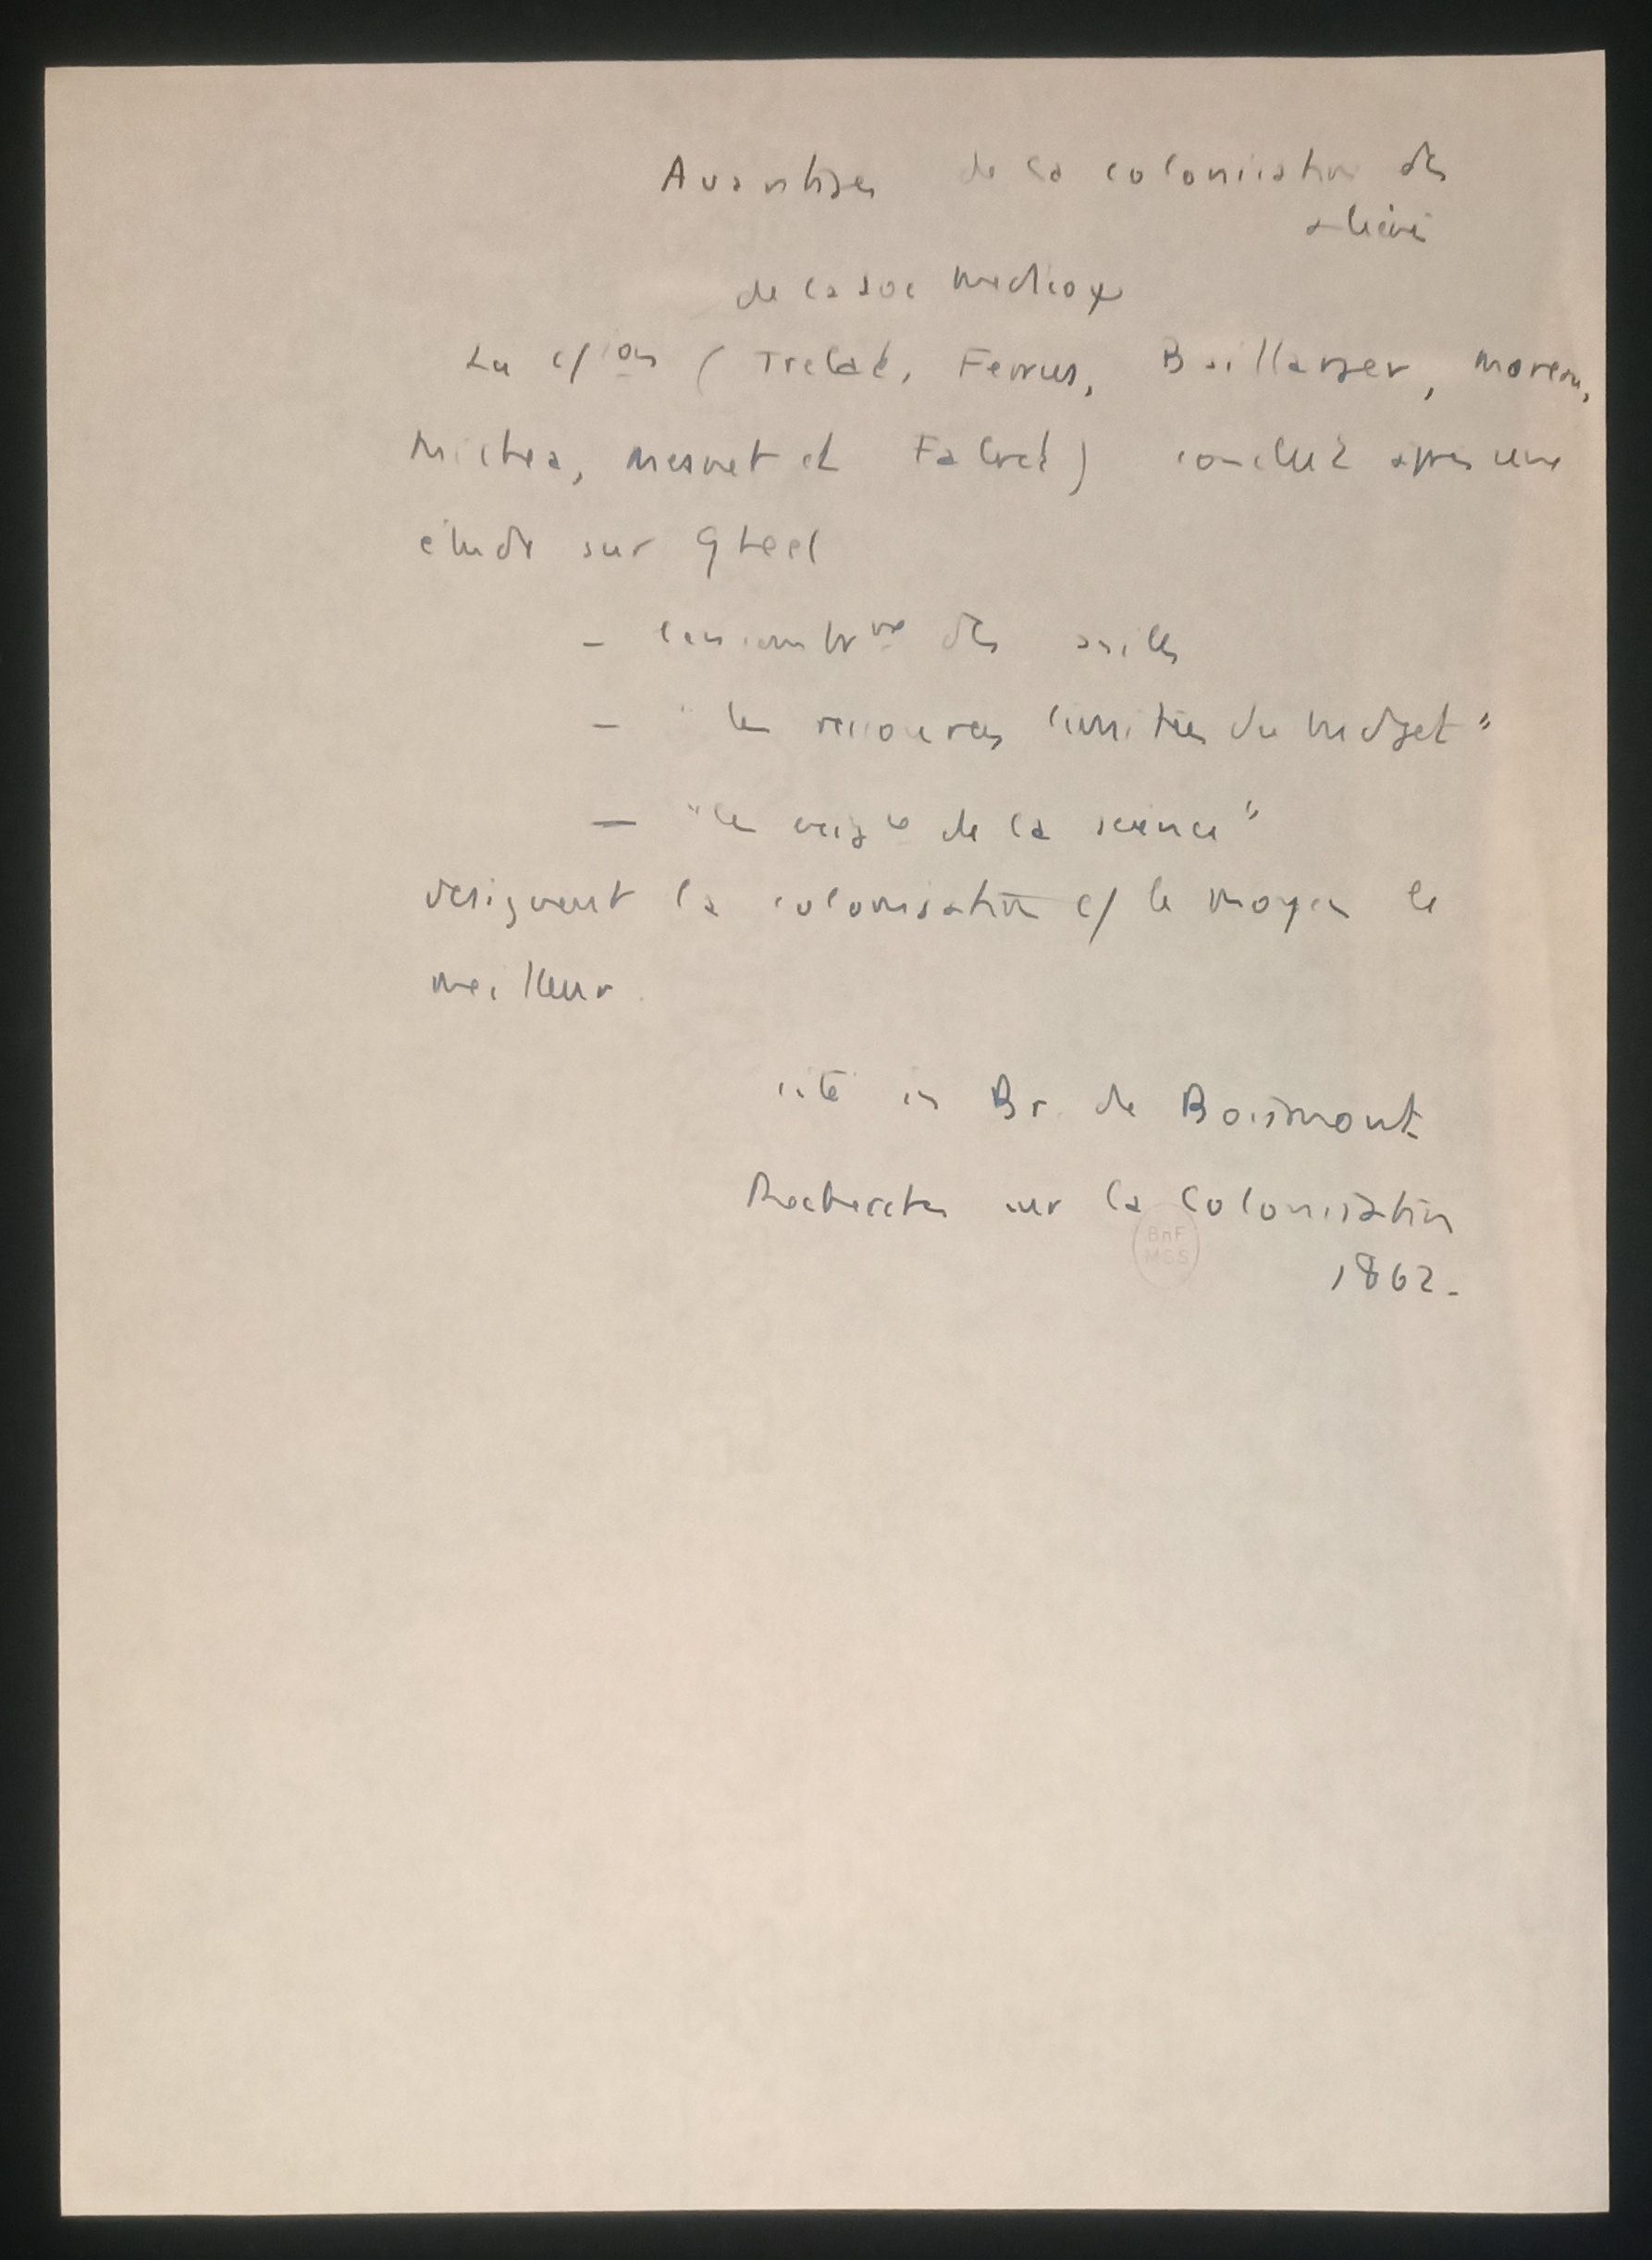 Avantages de la colonisation des
aliénés
de la soc medicoψ
La c/ion (Trelat, Ferrus, Baillarger, Moreau,
Michea, Mesnet et Falret) conclut après une
étude sur Gheel
- l'encombrt des asiles
- "les ressources limitées du budget"
- "les exig de la science"
designent la colonisation c/ le moyen le
meilleur.
cité in Br. de Boismont
Recherches sur la colonisation
BnF
MSS
1862.